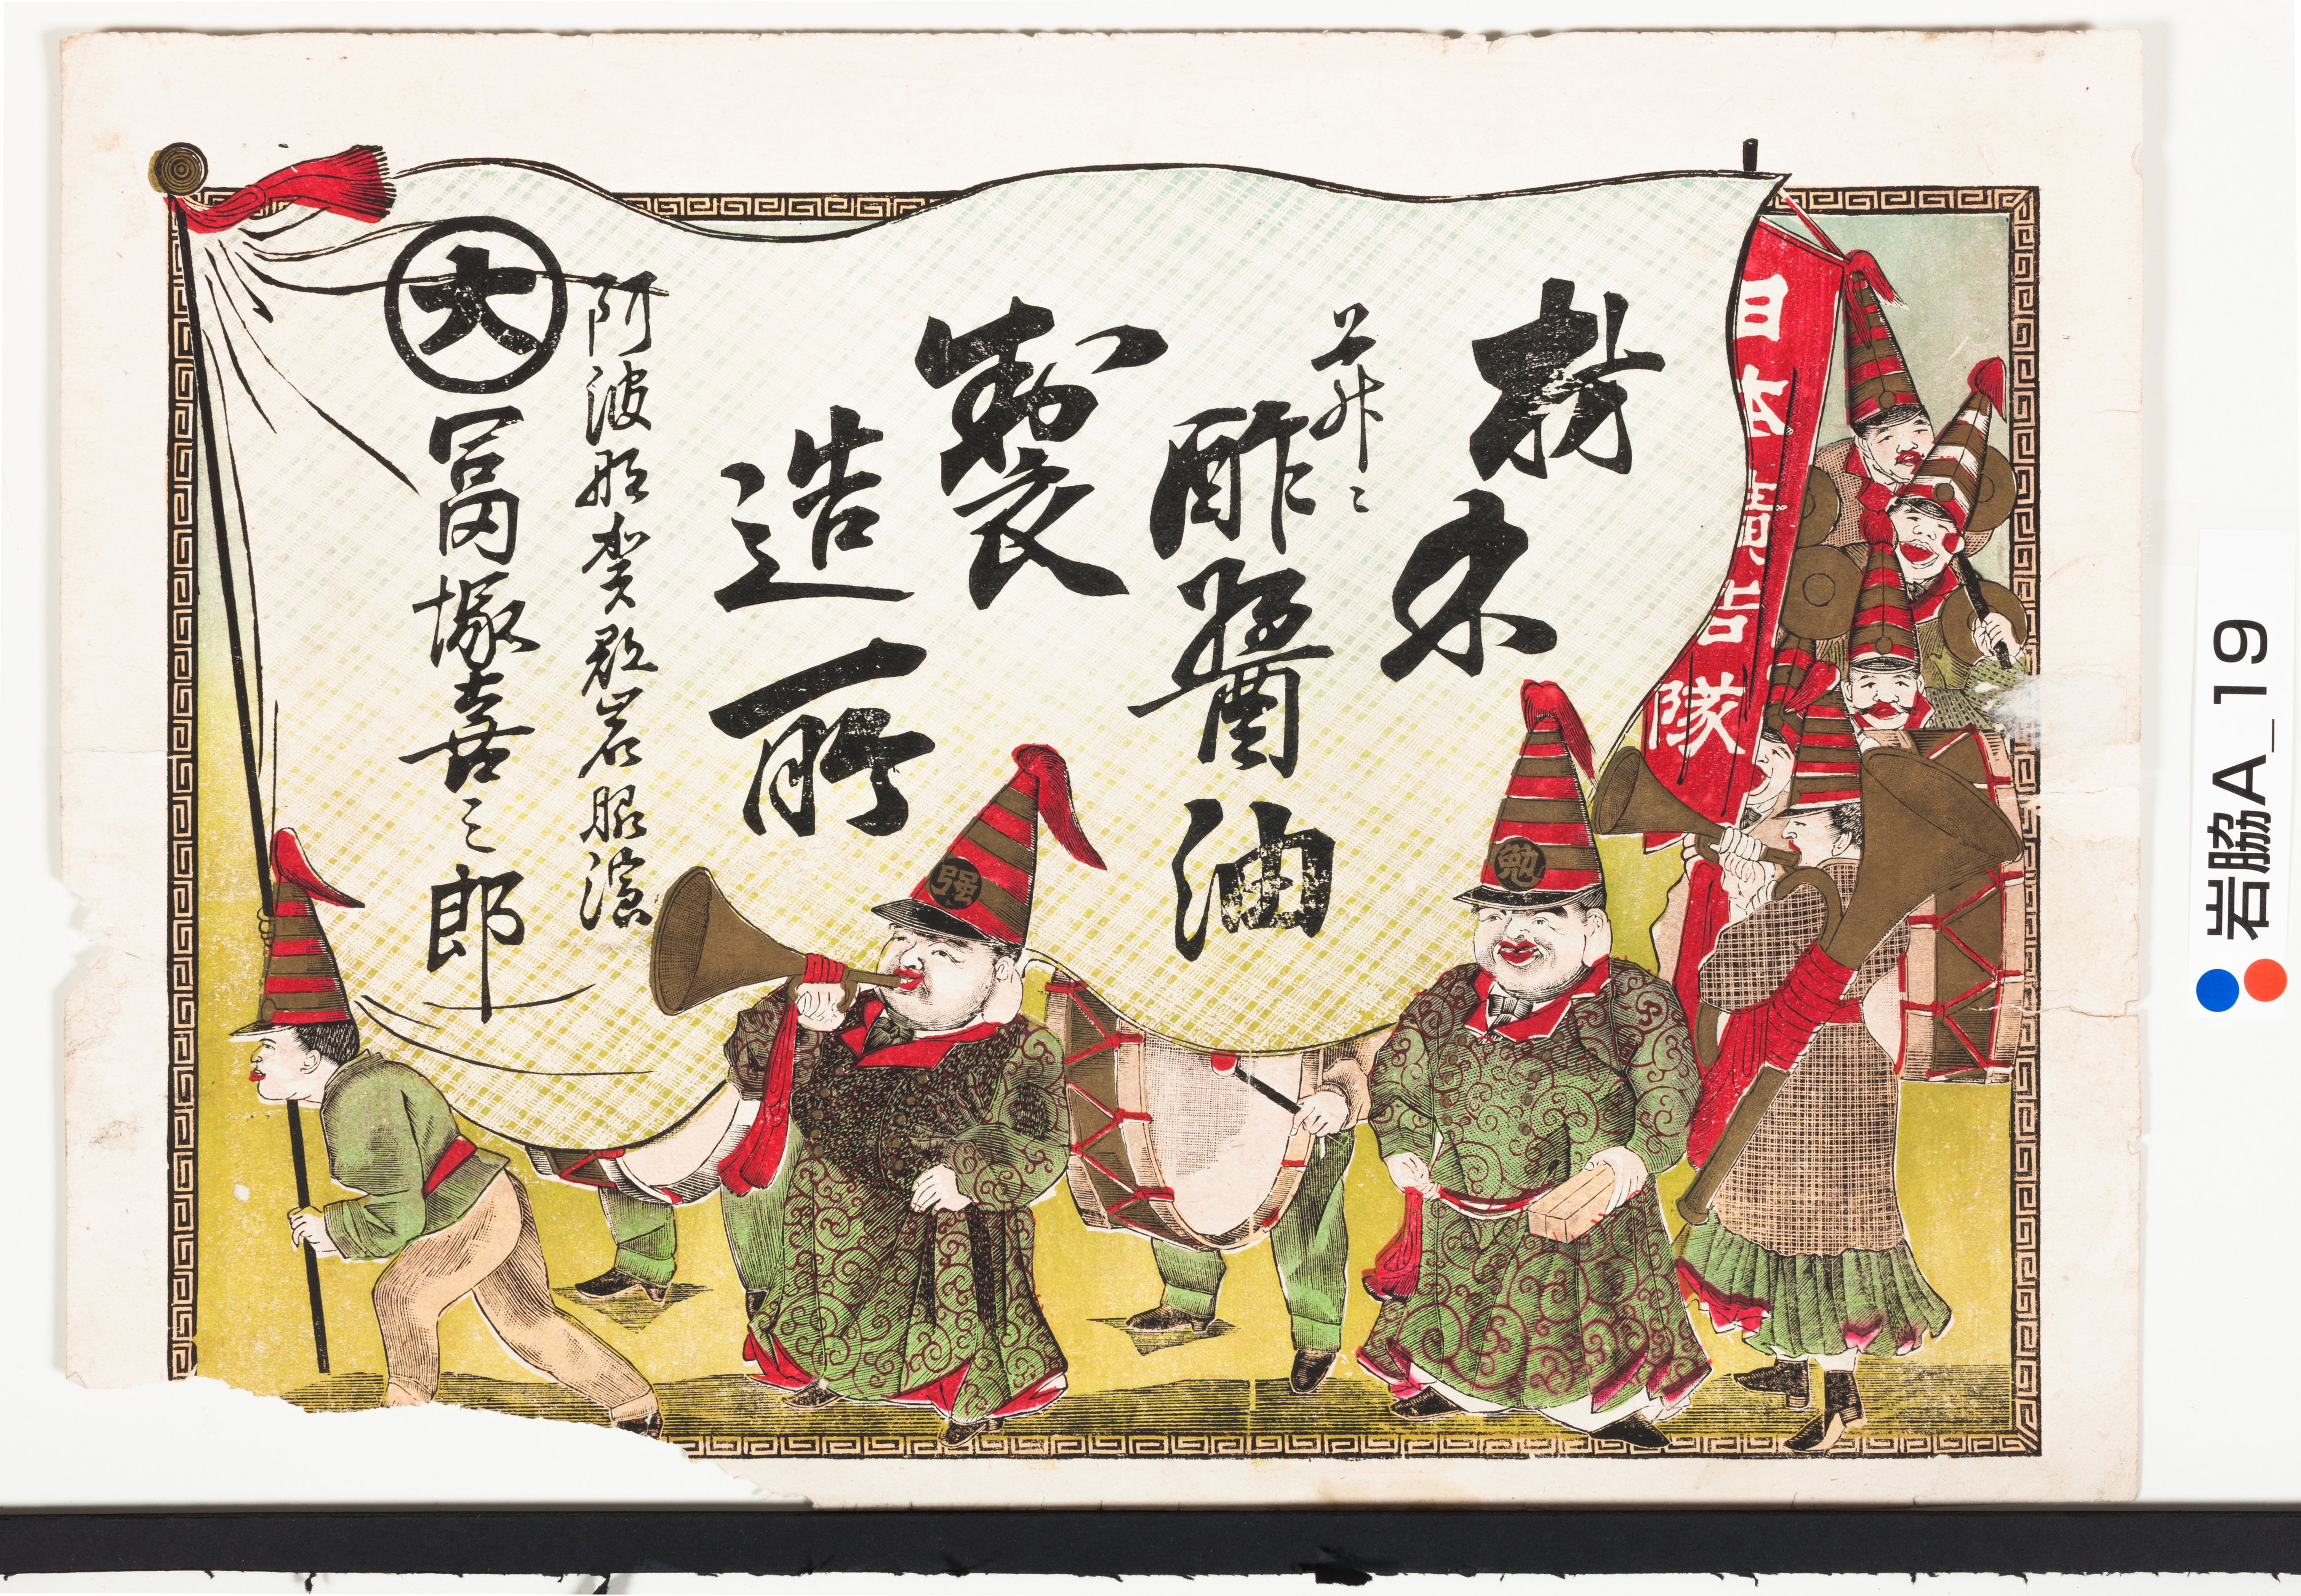 日本廣告隊
酢醤油
製
造所
阿波那賀郡岩脇濱
大
冨塚喜三郎
勉
强
岩脇A_19